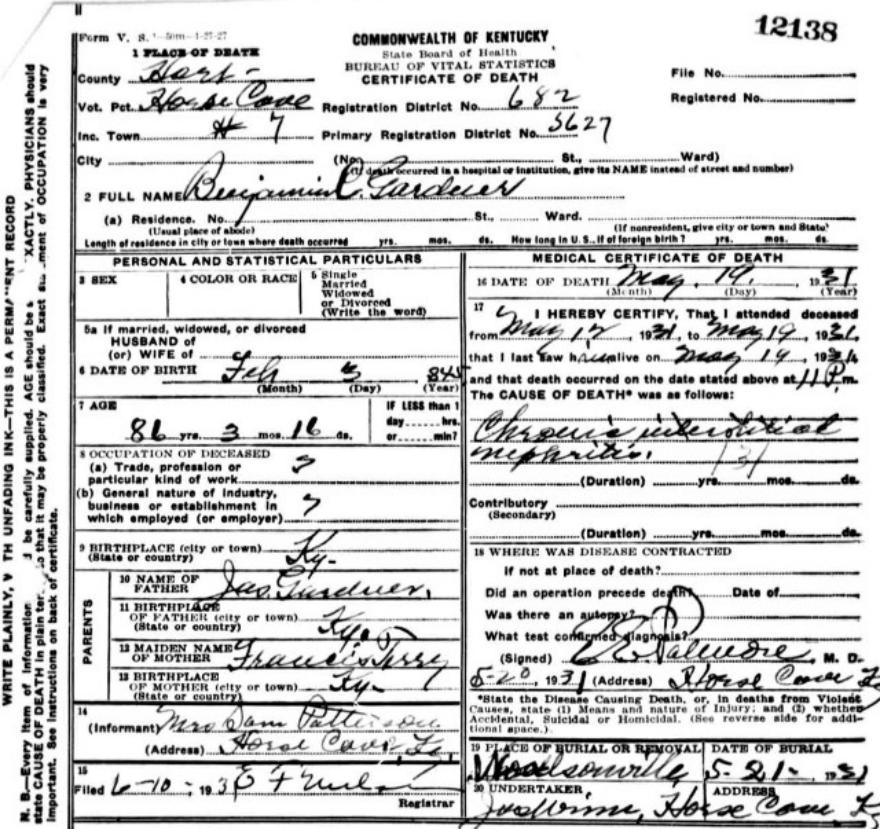 12138
Form V. S. 1-50m-4-27-27
COMMONWEALTH OF KENTUCKY
State Board of Health
BUREAU OF VITAL STATISTICS
CERTIFICATE OF DEATH
1 PLACE OF DEATH
County Hart
Vot. Pct. Horse Cave Registration District No. 682
Inc. Town # 7 Primary Registration District No. 5627
File No.
Registered No.
City (No. St., Ward)
(If death occurred in a hospital or institution, give its NAME instead of street and number)
2 FULL NAME Benjamin C. Gardner
(a) Residence. No. St., Ward.
(Usual place of abode) (If nonresident, give city or town and State)
Length of residence in city or town where death occurred yrs. mos. ds. How long in U.S., if of foreign birth? yrs. mos. ds.
PERSONAL AND STATISTICAL PARTICULARS
3 SEX 4 COLOR OR RACE 5 Single
Married
Widowed
or Divorced
(Write the word)
5a If married, widowed, or divorced
HUSBAND of
(or) WIFE of
6 DATE OF BIRTH Feb 3 845
(Month) (Day) (Year)
7 AGE IF LESS than 1
day hrs.
86 yrs. 3 mos. 16 ds. or min?
8 OCCUPATION OF DECEASED
(a) Trade, profession or
particular kind of work ?
(b) General nature of industry,
business or establishment in
which employed (or employer) ?
9 BIRTHPLACE (city or town) Ky-
(State or country)
PARENTS
10 NAME OF
FATHER Jas. Gardner.
11 BIRTHPLACE
OF FATHER (city or town) Ky.
(State or country)
12 MAIDEN NAME
OF MOTHER Francis Terry
13 BIRTHPLACE
OF MOTHER (city or town) Ky-
(State or country)
14
(Informant) Mrs Sam Patterson
(Address) Horse Cave, Ky.
15
Filed 6-10-, 193
Registrar
MEDICAL CERTIFICATE OF DEATH
16 DATE OF DEATH May, 19, 1931
(Month) (Day) (Year)
17 I HEREBY CERTIFY, That I attended deceased
from May 12, 1931, to May 19, 1931,
that I last saw him alive on May 19, 1931,
and that death occurred on the date stated above at 11 P.m.
The CAUSE OF DEATH* was as follows:
Chronic interstitial
nephritis. 131
(Duration) yrs. mos. ds.
Contributory
(Secondary)
(Duration) yrs. mos. ds.
18 WHERE WAS DISEASE CONTRACTED
If not at place of death?
Did an operation precede death? Date of
Was there an autopsy?
What test confirmed diagnosis?
(Signed) Palmore, M. D.
5-20, 1931 (Address) Horse Cave Ky
*State the Disease Causing Death, or, in deaths from Violent
Causes, state (1) Means and nature of Injury; and (2) whether
Accidental, Suicidal or Homicidal. (See reverse side for addi-
tional space.)
19 PLACE OF BURIAL OR REMOVAL DATE OF BURIAL
Woodsonville 5-21-, 1931
20 UNDERTAKER ADDRESS
Horse Cave Ky
WRITE PLAINLY, TH UNFADING INK—THIS IS A PERMA ENT RECORD
N. B.—Every item of information d be carefully supplied. AGE should be s XACTLY. PHYSICIANS should
state CAUSE OF DEATH in plain ter so that it may be properly classified. Exact ment of OCCUPATION is very
important. See instructions on back of certificate.